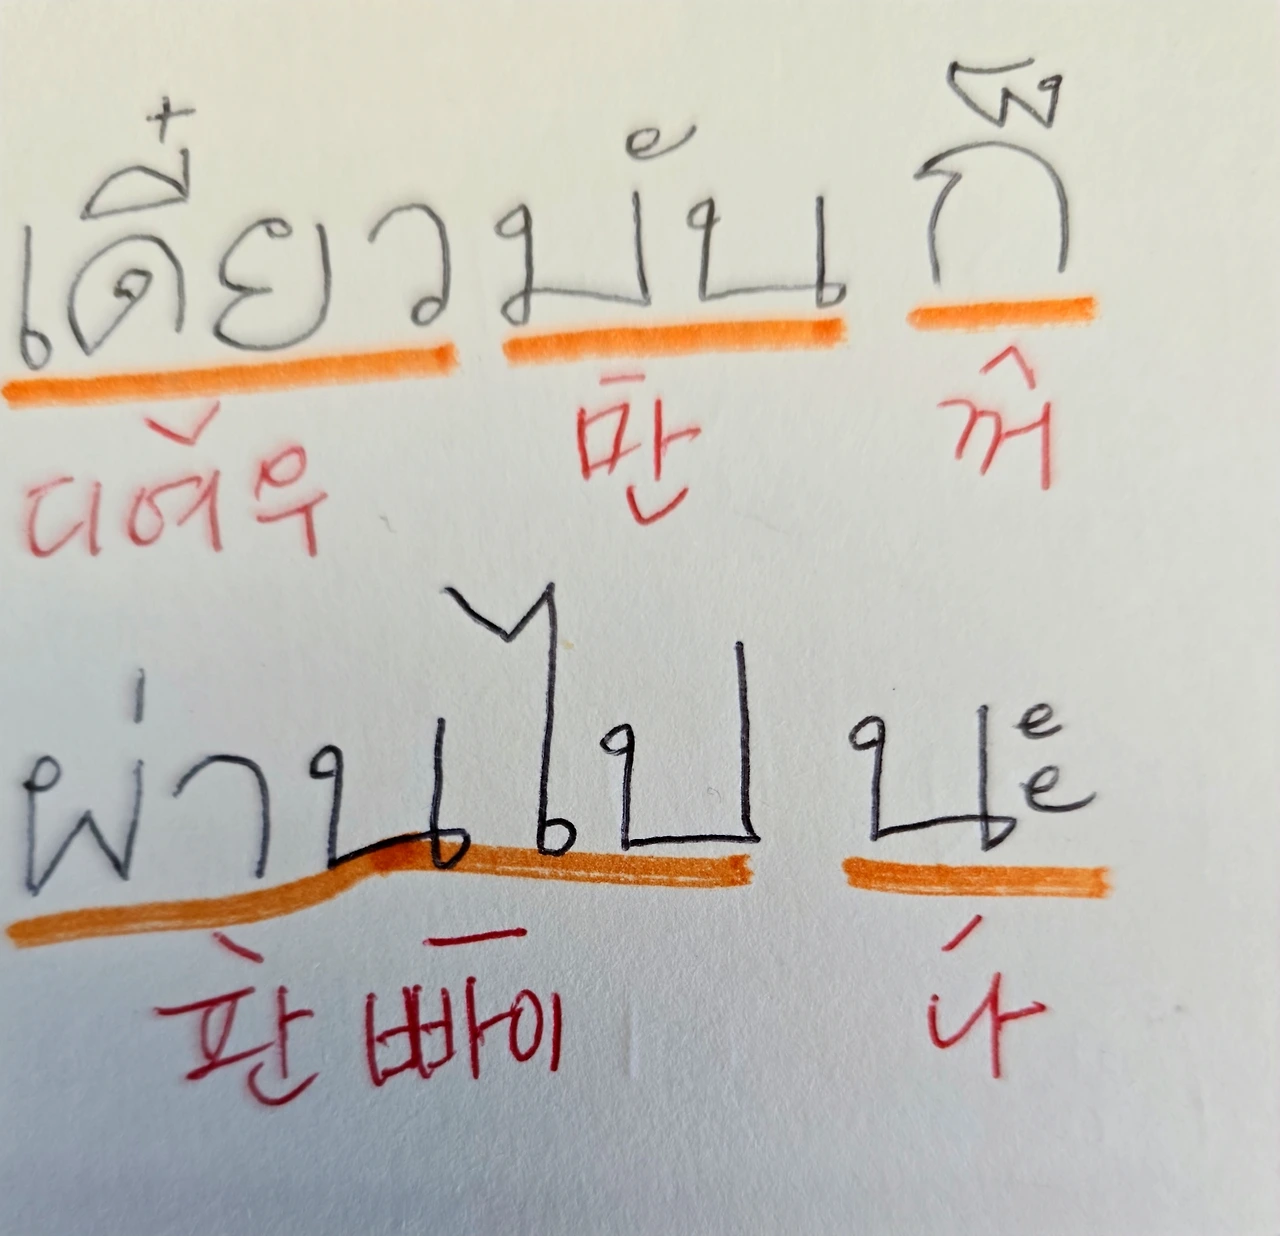 เดี๋ยว มัน ก็
디여우 만 꺼
ผ่านไป นะ
판 빠이 나